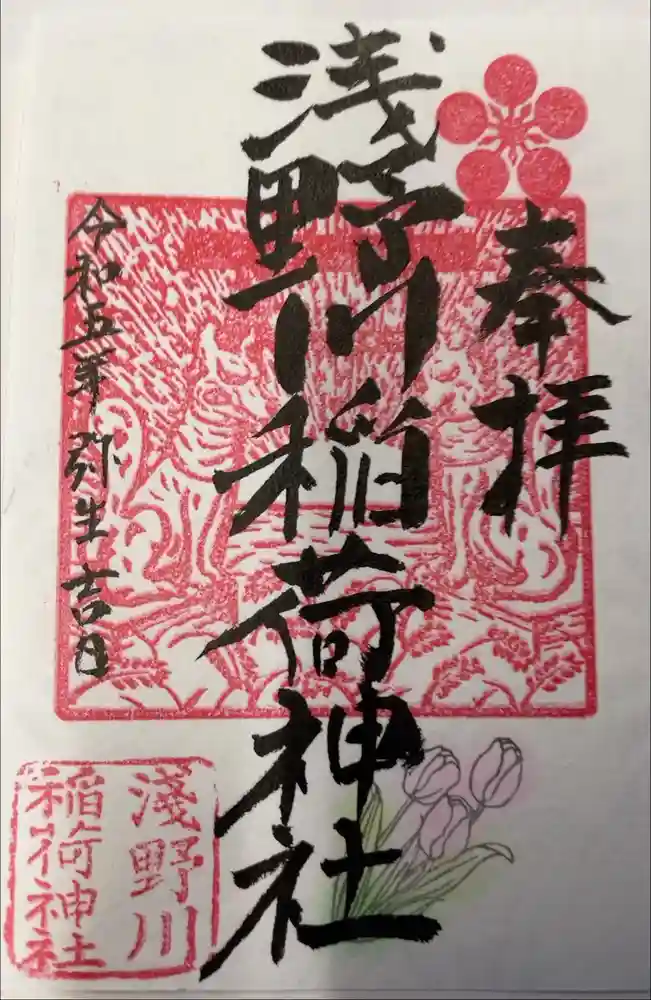 奉拝
浅野川稲荷神社
令和五年 弥生 吉日
淺野川
稲荷神社